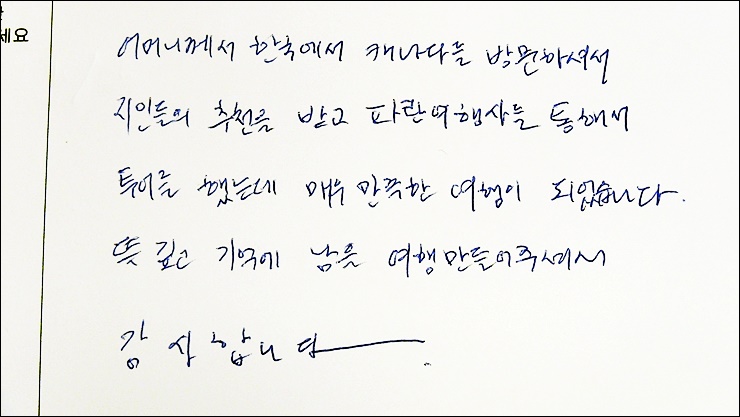 세요
어머니께서 한국에서 캐나다를 방문하셔서
지인들의 추천을 받고 파란여행사를 통해서
투어를 했는데 매우 만족한 여행이 되었습니다.
뜻 깊고 기억에 남을 여행만들어주셔서
감사합니다.